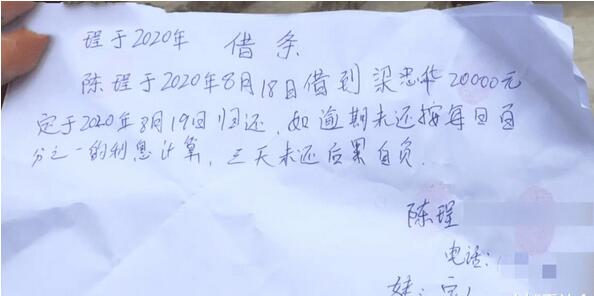 珵于2020年 借条
陈珵于2020年8月18日借到梁忠华20000元
定于2020年8月19日归还，如逾期未还按每日百
分之一的利息计算，三天未还后果自负.
陈珵
电话: